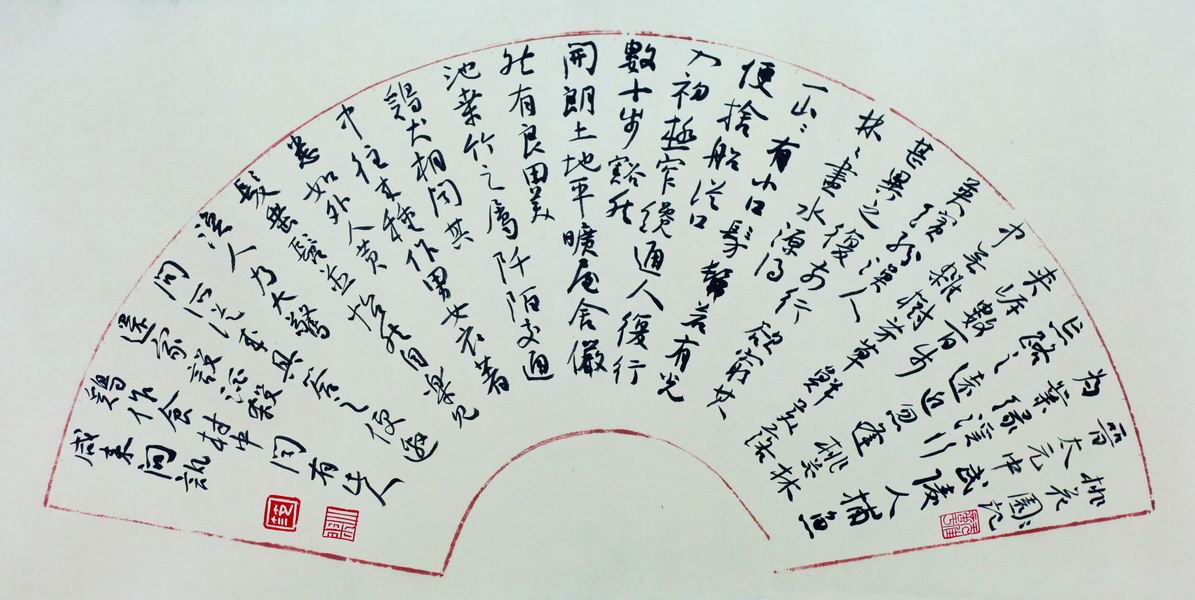 桃花園记
晋太元中武陵人捕魚
为業缘溪行
忘路之遠近忽逢桃花林
夹岸數百步
中無雜樹芳草鮮美落
英缤紛漁人
甚異之復前行欲窮其
林〻盡水源得
一山〻有小口髣髴若有光
便捨船從口
入初極窄纔通人復行
數十步豁然
開朗土地平曠屋舍儼
然有良田美
池桒竹之屬阡陌交通
鷄犬相聞其
中往来種作男女衣著
悉如外人黄
髮垂髫並怡然自樂見
漁人乃大驚
問所從来具答之便邀
還家設酒殺
鷄作食村中聞有此人
咸来問訊